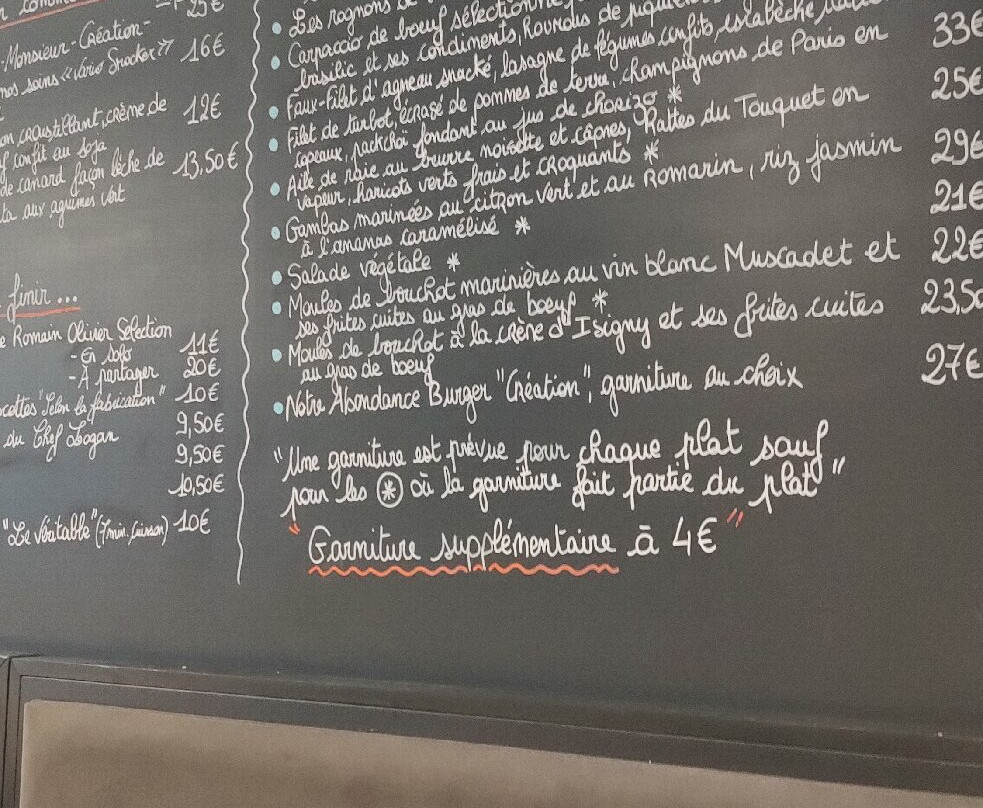 25€
-Monsieur-Création-
nos soins "Vario Smoker" 16€
on croustillant, crème de 12€
confit au soja
de canard façon pêche de 13,50€
ta aux agrumes vert
finir...
Romain Olivier Sélection
-En solo 11€
-A partager 20€
cottes "Selon la fabrication" 10€
du Chef Logan 9,50€
9,50€
10,50€
"Le Véritable" (7min. Cuisson) 10€
• Les rognons de
• Carpaccio de bœuf sélectionné
basilic et ses condiments, Rovrous de 33€
• Faux-Filet d'agneau snacké, lasagne de légumes confits, escabèche
• Filet de turbot, écrasé de pommes de terre, champignons de Paris en 25€
copeaux, packchoï fondant au jus de chorizo *
• Aile de raie au beurre noisette et câpres, Rattes du Touquet en 29€
vapeur, haricots verts frais et croquants *
• Gambas marinées au citron vert et au Romarin, riz jasmin 21€
à l'ananas caramélisé *
• Salade végétale * 22€
• Moules de bouchot marinières au vin blanc Muscadet et 23,50
ses frites cuites au gras de boeuf *
• Moules de bouchot à la crème d'Isigny et ses frites cuites 27€
au gras de boeuf
• Notre Abondance Burger "Création", garniture au choix
"Une garniture est prévue pour chaque plat sauf
pour les * où la garniture fait partie du plat"
"Garniture supplémentaire à 4€"